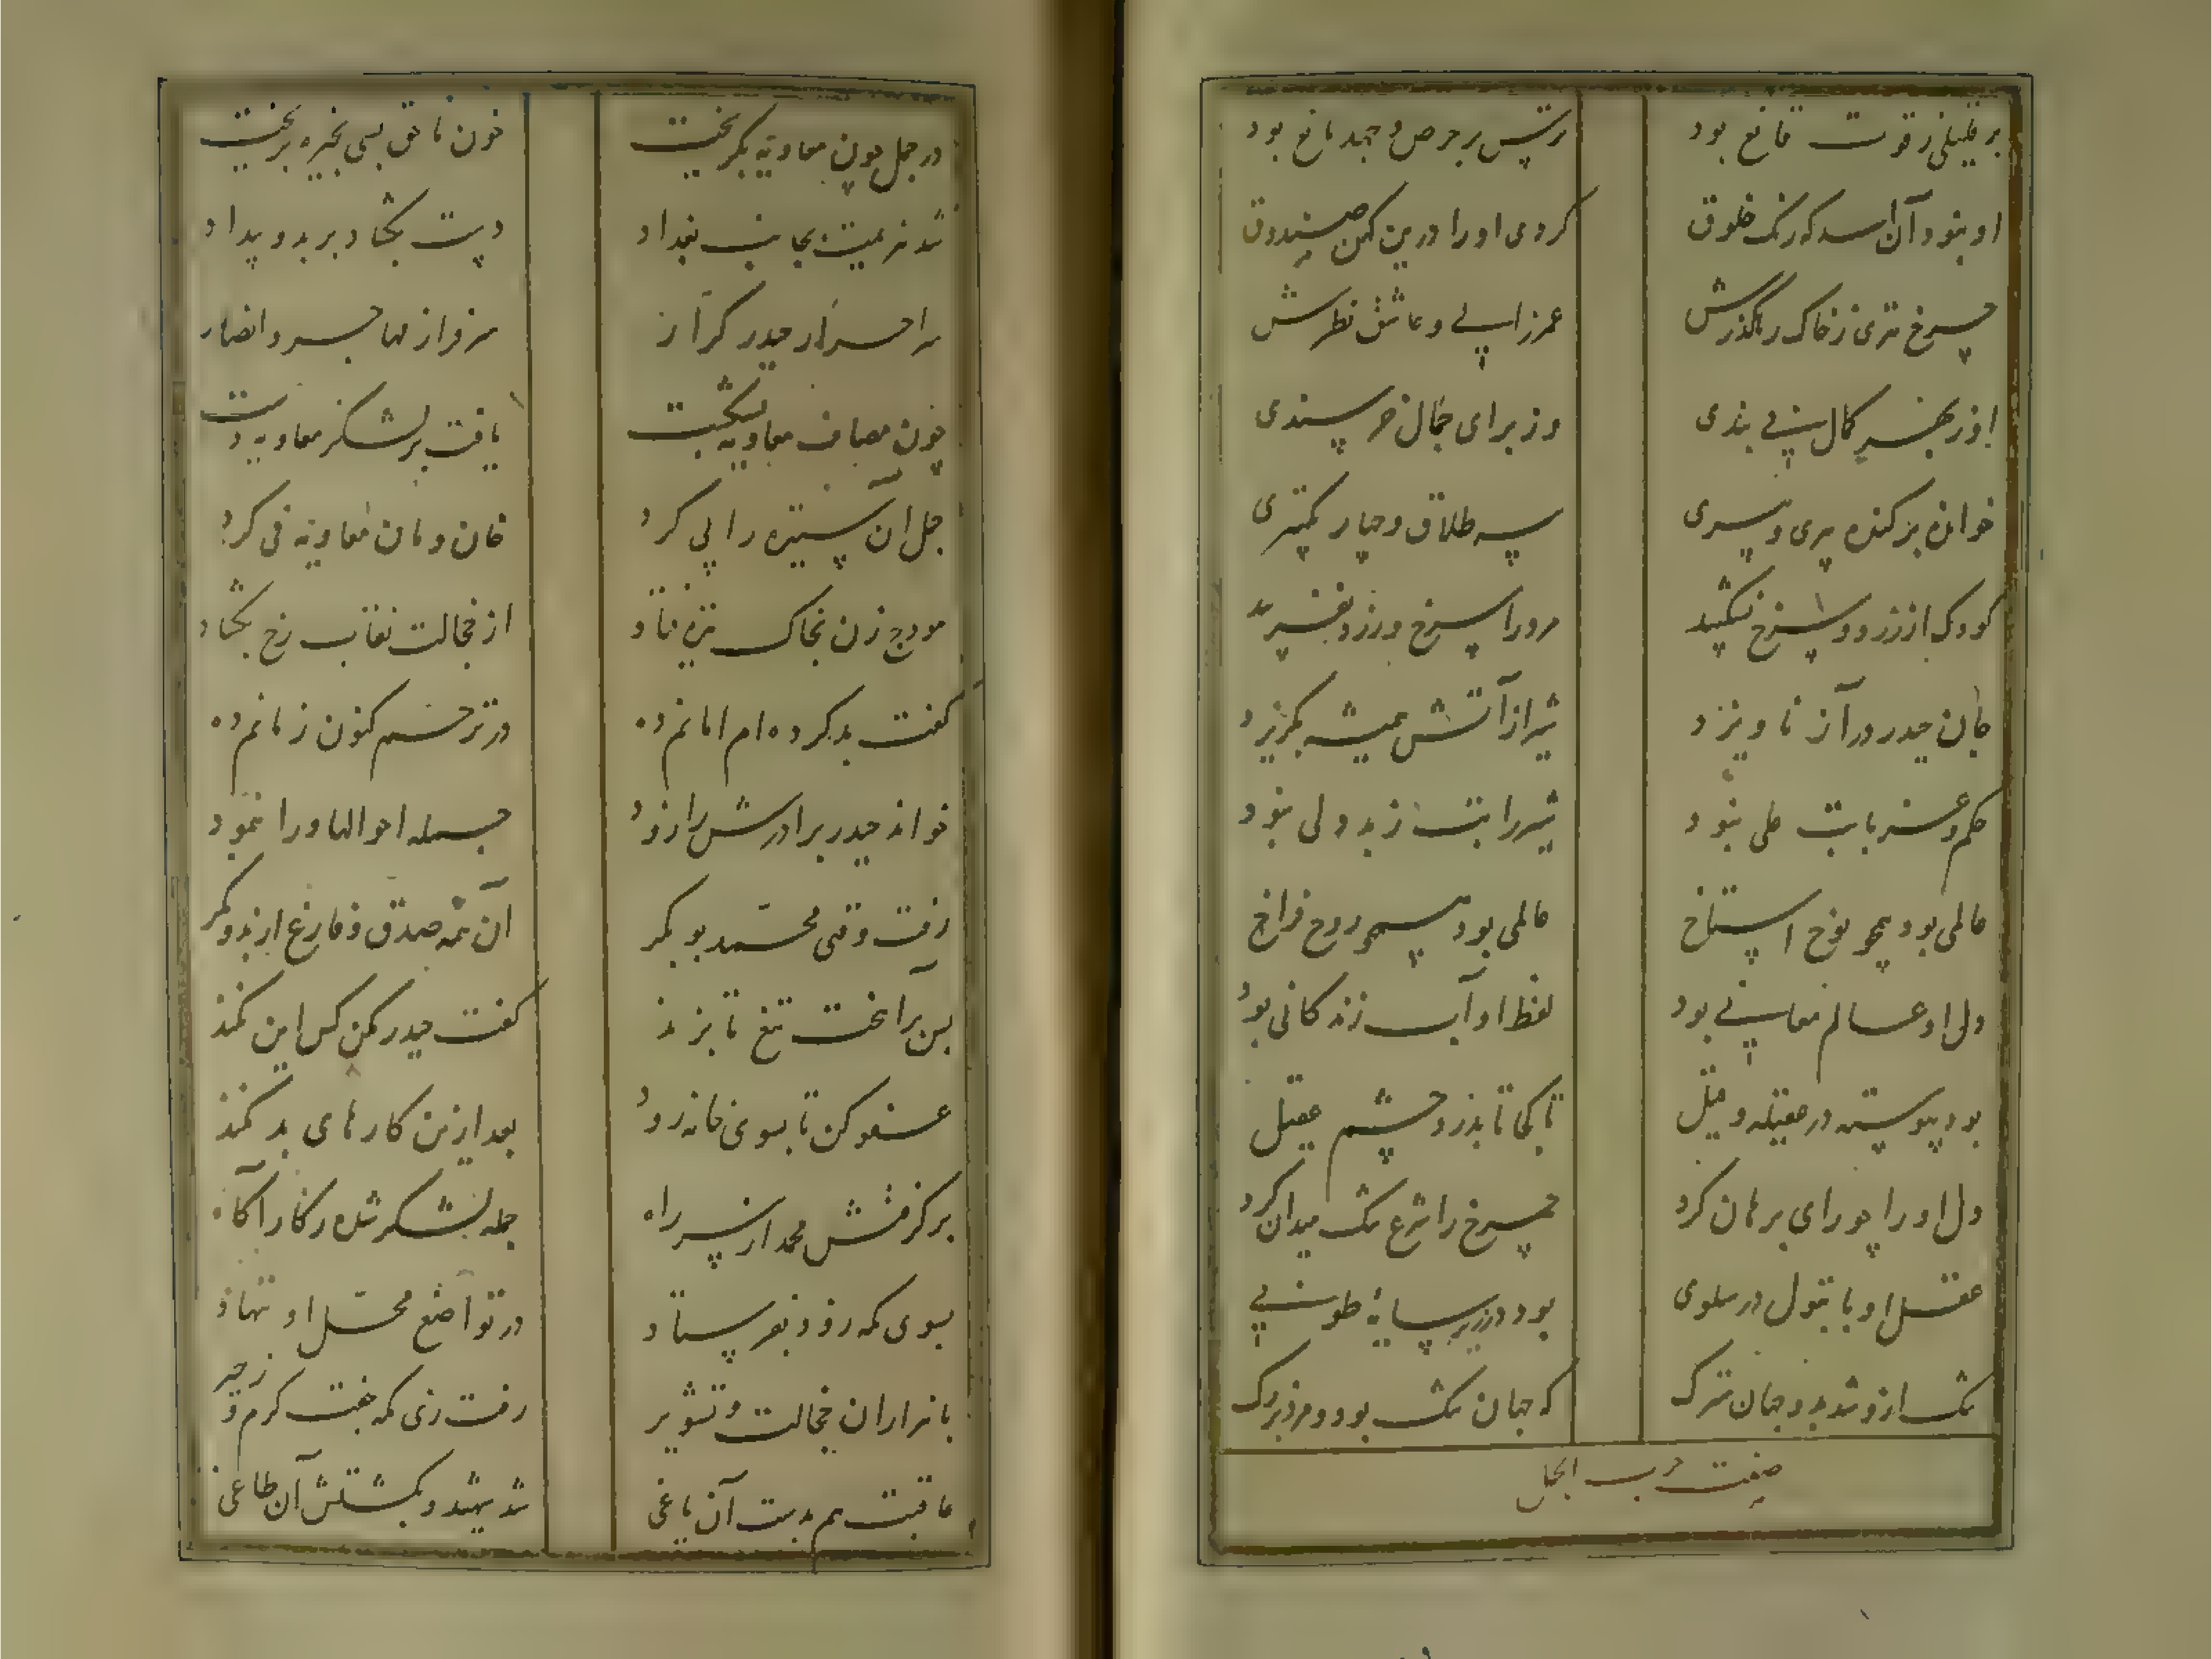 بر قلیلی ز قوت قانع بود   زتپس بر حرص و جهد مانع بود
او بنود آن اسد که رنک خلوق   کردی او را درین کهن صندوق
چرخ مزی ز خاک رهگذرش   عرزاپی و عاشق نظرش
او ز بهر کمال پنی بندی   وز برای جمال خرسندی
خوانده بر کنده پیری و سری   سه طلاق و چهار تکبیری
کودک از زرد و سرخ نشکیبد   مرد را سرخ و زرد نفریبد
جان حیدر در آز ناویزد   شیر از آتش همیشه بگریزد
حکم و عشر بابت علی نبود   شیر را بت ز بددلی نبود
عالمی بود همچو نوح استاخ   عالمی بود همچو روح فراخ
دل او عالم معانی بود   لفظ او آب زندکانی بود
بود پیوسته در عقیله و قیل   تا کجا تا بذر و چشم عقیل
دل او را چو رای برهان کرد   چرخ را شرع تنک میدان کرد
عقل او با بتول در سلوی   بود در زیر سایهٔ طوبی
تنک ازو شد بدو جهان سترک   که جهان تنک بود و مرد بزرک
صفت حرب الجمل
در جمل چون معاویه بکریخت   خون ناحق بسی بخیره بریخت
شد هزیمت بجانب بغداد   دست بکشاد بر بد و بیداد
با حرار حیدر کرار   سرفراز مهاجر و انصار
چون مصاف معاویه بشکست   یافت بر لشکر معاویه دست
جمل آن ستیزه را پی کرد   خان و مان معاویه فی کرد
هودج زن بخاک تیره فتاد   از خجالت نقاب رخ بکشاد
کفت بد کرده‌ام امانم ده   در ترحم کنون زمانم ده
خواند حیدر برادرش را زود   جمله احوالها ورا بنمود
رفت وقتی محمد بوبکر   آن همه صدق و فارغ از بد و مکر
پس برآهخت تیغ تا بزند   کفت حیدر مکن کس این نکند
عفو کن تا بسوی خانه رود   بعد ازین کارهای بد نکند
برکرفتش محمد از سر راه   جمله لشکر شده ز کار آکاه
بسوی مکه زود بفرستاد   در تواضع محل او ننهاد
با هزاران خجالت و تشویر   رفت زی مکه جفت کرم و زحیر
عاقبت هم بدست آن باغی   شد شهید و بکشتش آن طاغی